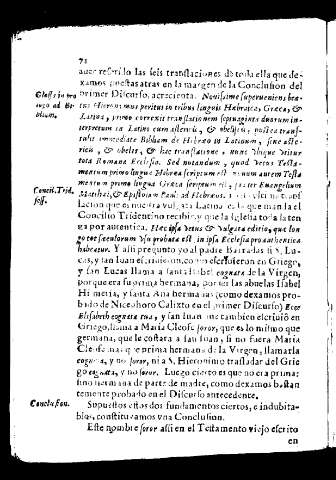 72
auer referido las seis translaciones de toda ella que de-
xamos puestas atras en la margen de la Conclusion del
primer Discurso, acrecienta. Novissime superueniens bea-
tus Hieronimus peritus in tribus linguis Hebraica, Græca, &
Latina, primo correxit translationem septuaginta duorum in-
terpretum in Latino cum asteriis, & obeliscis, postea trans-
tulit immediate Bibliam de Hebreo in Latinum, sine aste-
riis, & obelis, & hac translatione, nunc vbique vtitur
tota Romana Ecclesia. Sed notandum, quod Vetus Testa-
mentum primo lingue Hebreæ scriptum est, nouum autem Testa
mentum primo lingua Græca scriptum est, præter Euangelium
Matthæi, & Epistolam Pauli ad Hebraeos. trans
lacion que es nuestra vulgata Latina es la que manda el
Concilio Tridentino recibir, y que la Iglesia toda la ten
ga por autentica. Hæc ipsa vetus & vulgata editio, que lon
go tot sæculorum vsu probata est in ipsa Ecclesia pro authentica
habeatur. Y assi pregunto yo al padre Barradas si S. Lu-
cas, y san Iuan escriuieron, como escriuieron en Griego,
y san Lucas llama a santa Isabel cognata de la Virgen,
porque era su prima hermana, por ser las abuelas Isabel
Hismeria, y santa Ana hermanas (como dexamos pro-
bado de Nicephoro Calixto en el primer Discurso) Ecce
Elisabeth cognata tua, y san Iuan que tambien escriuio en
Griego, llama a Maria Cleofe soror, que es lo mismo que
germana, que le costara a san Iuan, si no fuera Maria
Cleofe mas que prima hermana de la Virgen, llamarla
cognata, y no soror, ni a S. Hieronimo trasladar del Grie
go cognata, y no soror. Luego cierto es que no era prima:
sino hermana de parte de madre, como dexamos bastan
temente probado en el Discurso antecedente.
Supuestos estos dos fundamentos ciertos, e indubita-
bles, constituyamos vna Conclusion.
Este nombre soror assi en el Testamento viejo escrito
en
Concil. Trid.
sess.
Conclusion.